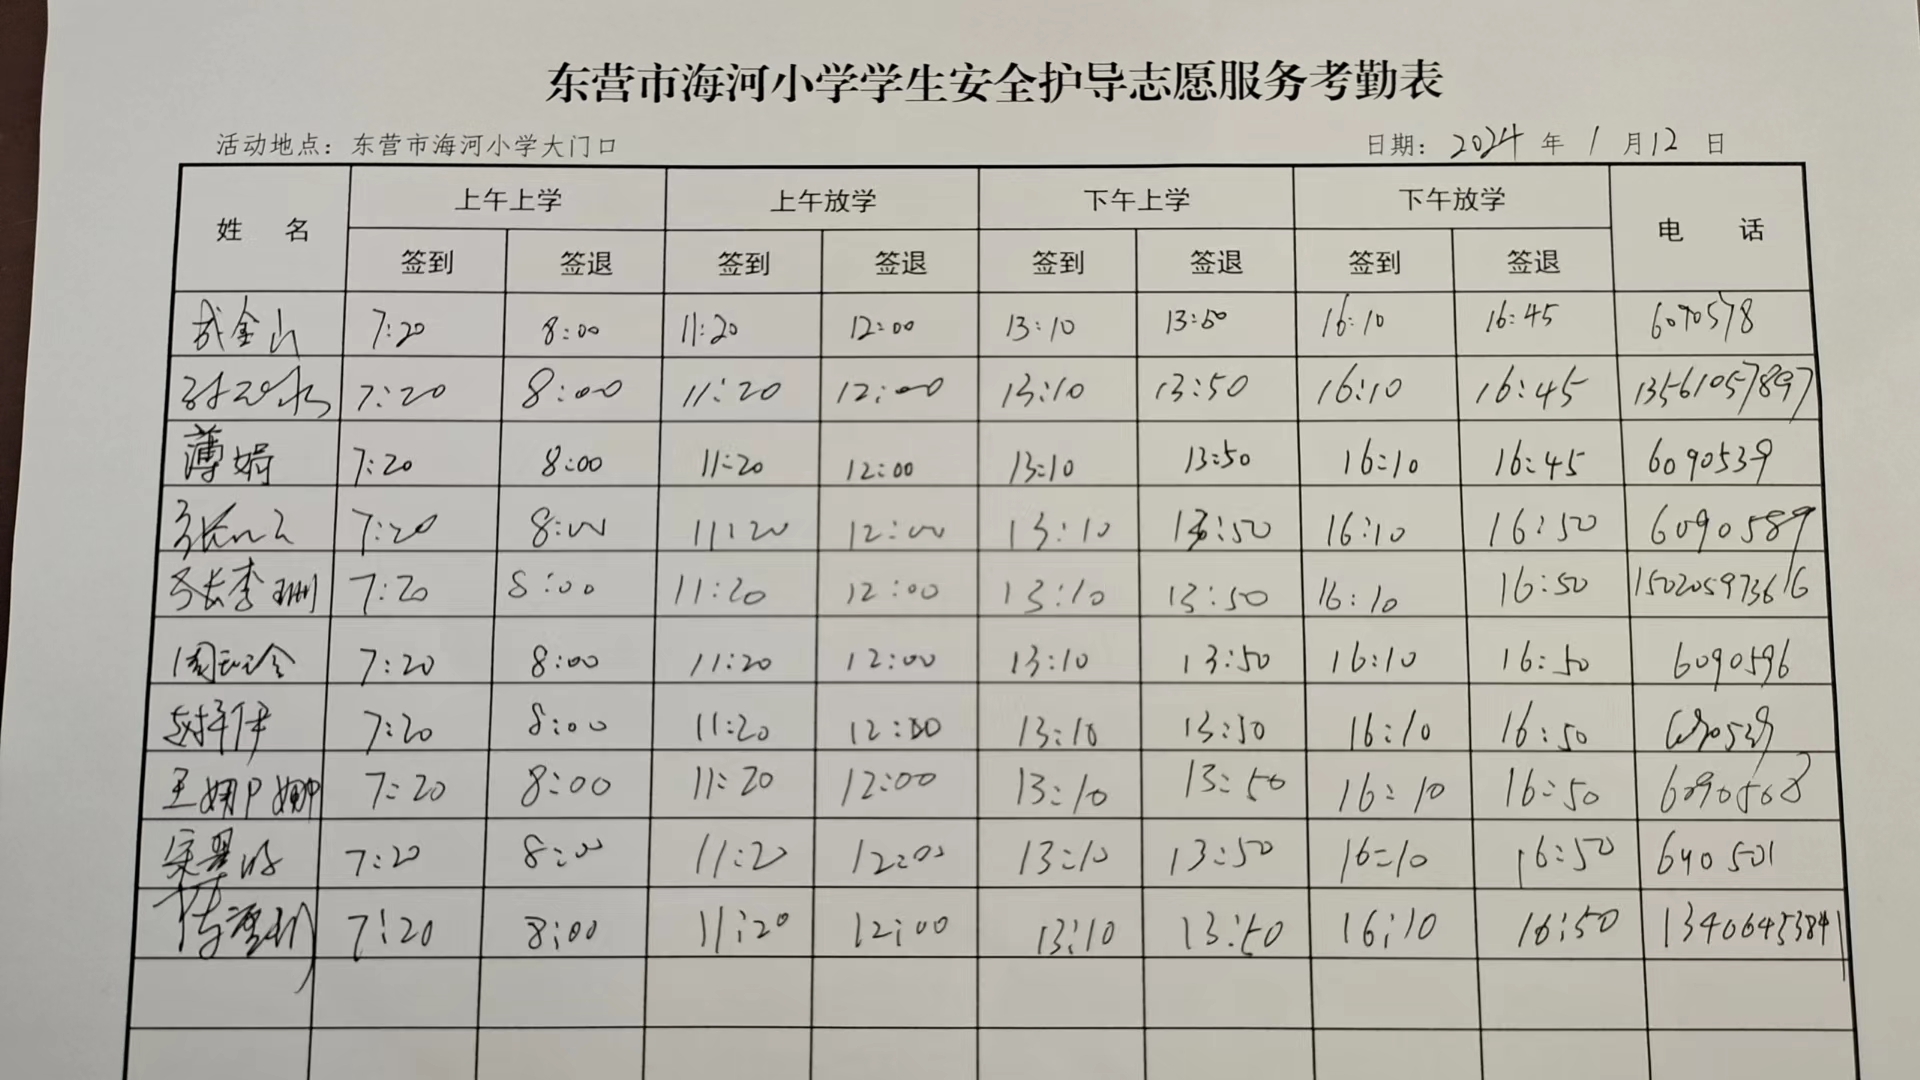 东营市海河小学学生安全护导志愿服务考勤表
活动地点：东营市海河小学大门口 日期：2024 年 1 月 12 日
姓 名 上午上学 上午放学 下午上学 下午放学 电 话
签到 签退 签到 签退 签到 签退 签到 签退
成金山 7:20 8:00 11:20 12:00 13:10 13:50 16:10 16:45 6090578
7:20 8:00 11:20 12:00 13:10 13:50 16:10 16:45 13561057897
薄娟 7:20 8:00 11:20 12:00 13:10 13:50 16:10 16:45 6090539
7:20 8:00 11:20 12:00 13:10 13:50 16:10 16:50 6090589
张李珊 7:20 8:00 11:20 12:00 13:10 13:50 16:10 16:50 15020597366
周玲 7:20 8:00 11:20 12:00 13:10 13:50 16:10 16:50 6090596
7:20 8:00 11:20 12:00 13:10 13:50 16:10 16:50
王娜娜 7:20 8:00 11:20 12:00 13:10 13:50 16:10 16:50 6090508
7:20 8:00 11:20 12:00 13:10 13:50 16:10 16:50
7:20 8:00 11:20 12:00 13:10 13:50 16:10 16:50 13406453841